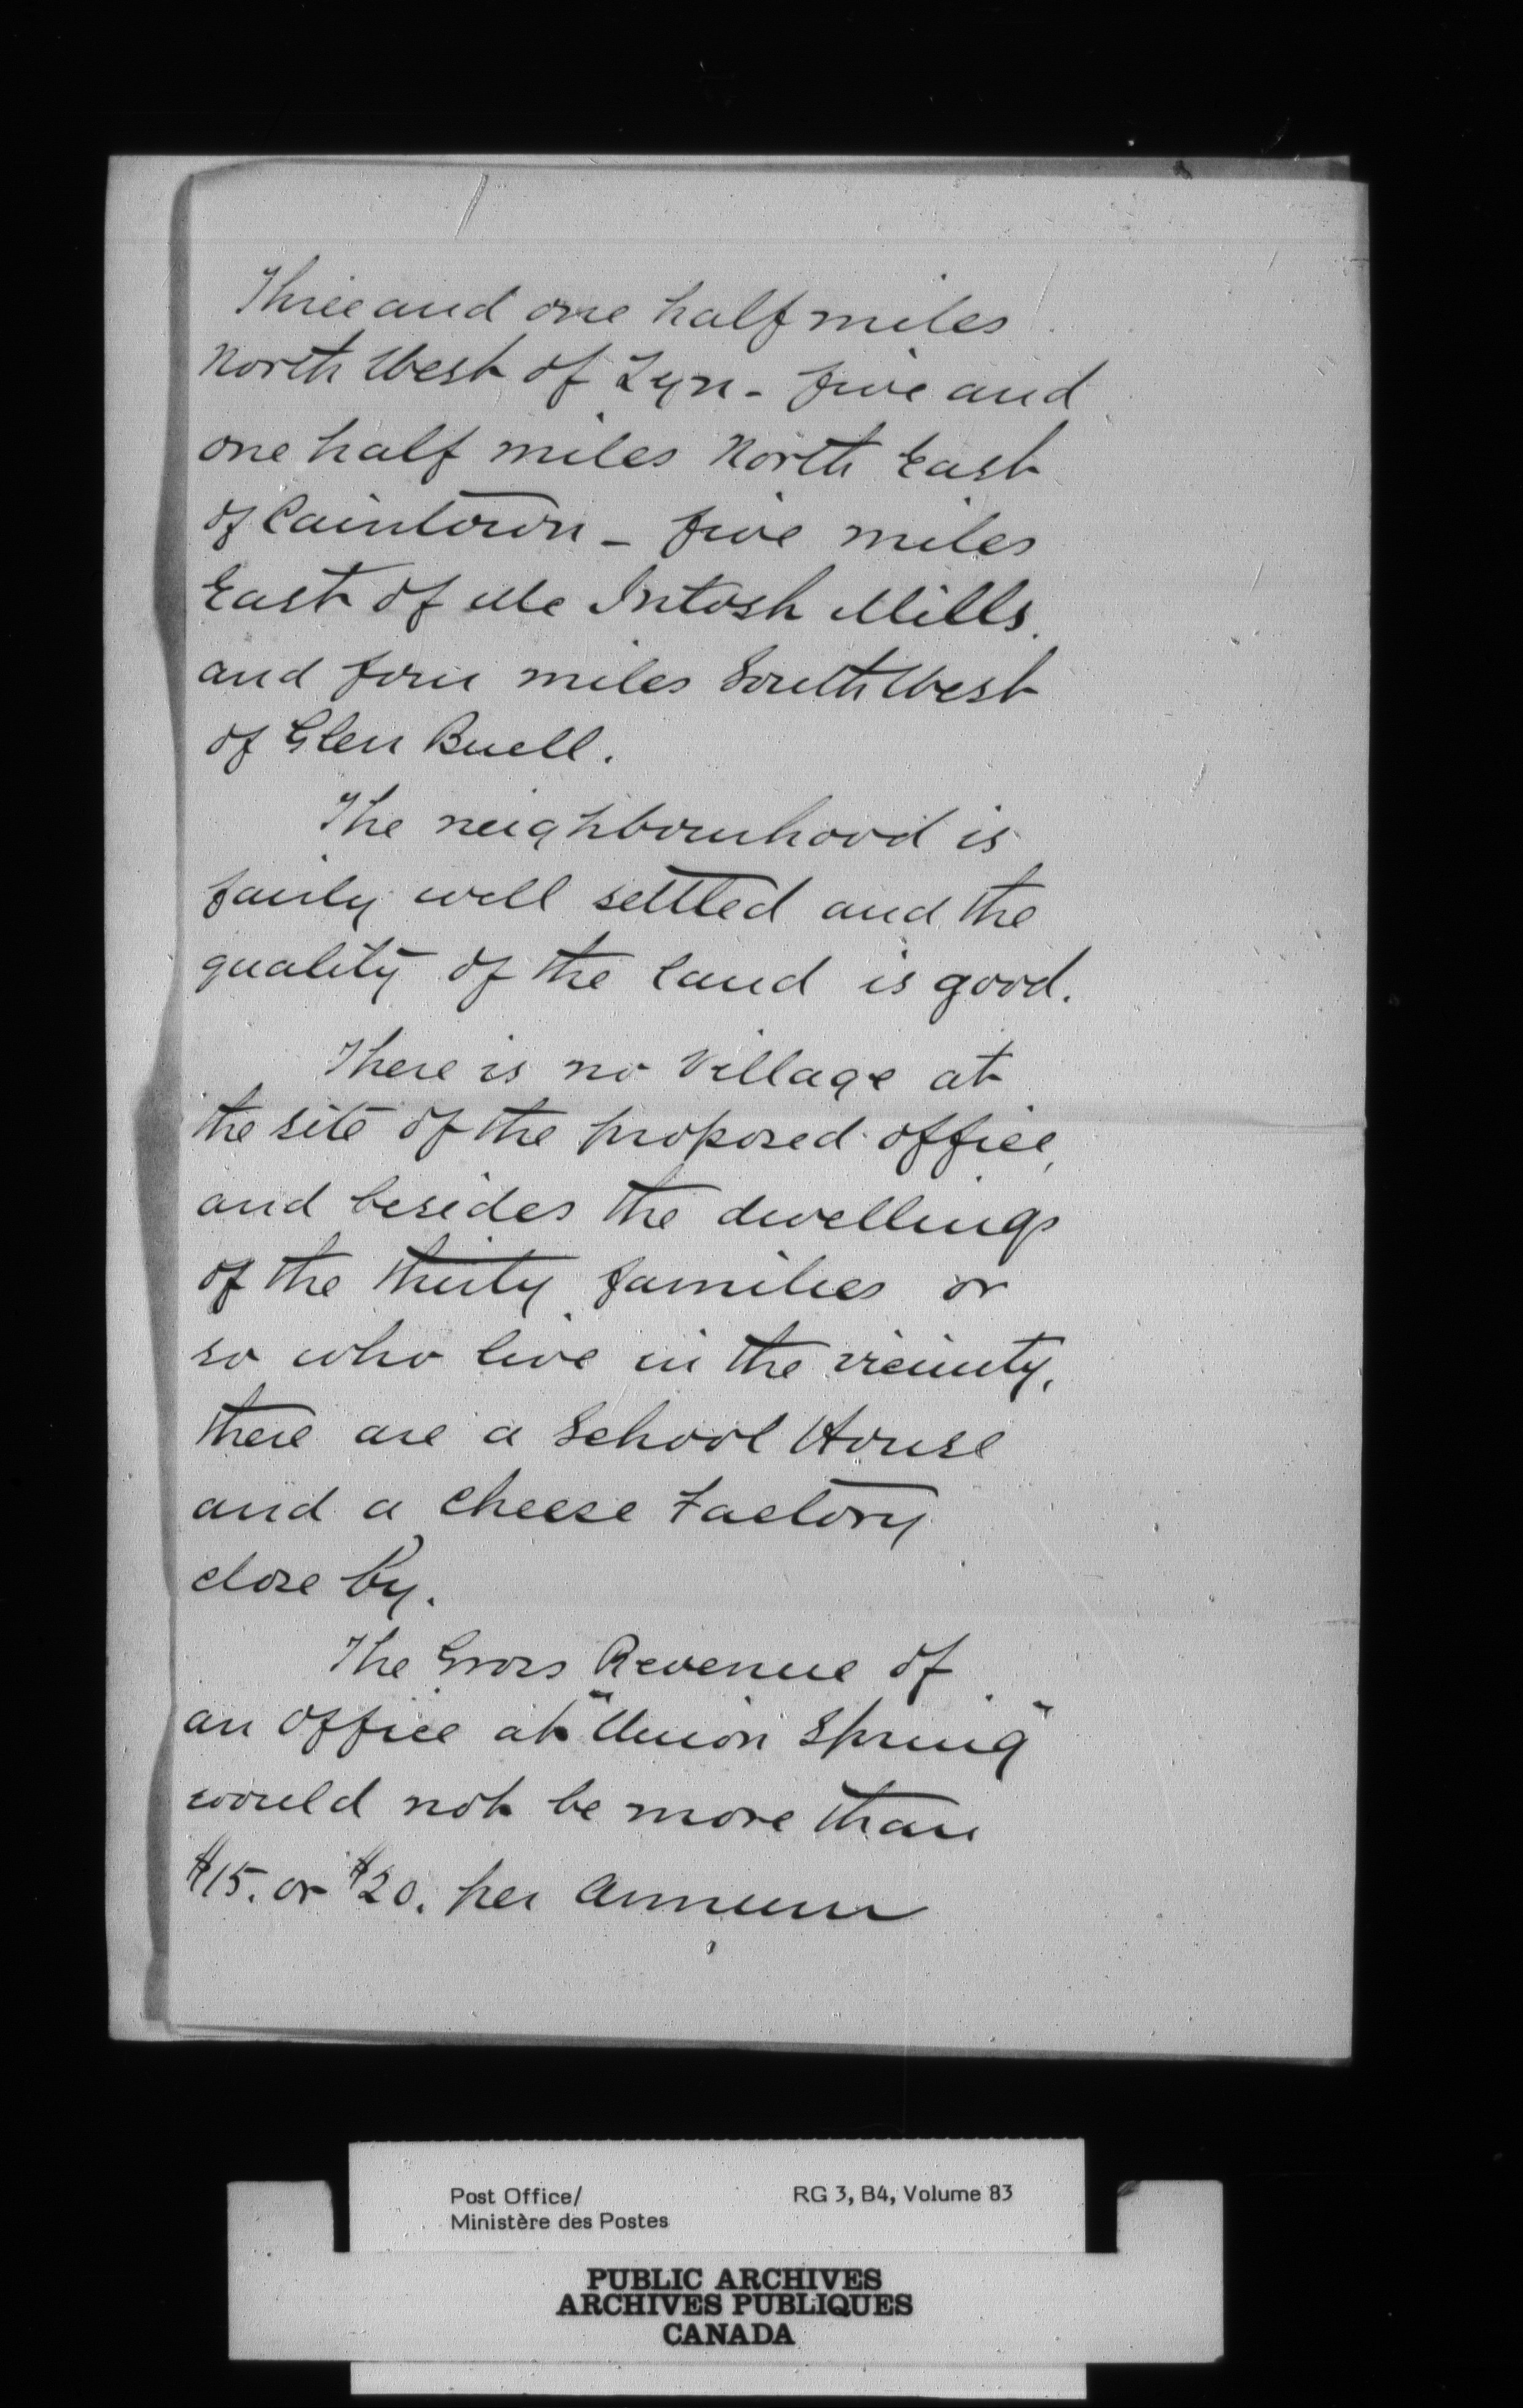 Three and one half miles
North West of Lyn - five and
one half miles North East
of Caintown - five miles
East of Mc Intosh Mills.
and four miles South West
of Glen Buell.
The neighbourhood is
fairly well settled and the
quality of the land is good.
There is no Village at
the site of the proposed office,
and besides the dwellings
of the thirty families or
so who live in the vicinity,
there are a School House
and a Cheese Factory
close by.
The Gross Revenue of
an Office at "Union Spring"
would not be more than
$15. or $20. per Annum
Post Office/
Ministère des Postes
RG 3, B4, Volume 83
PUBLIC ARCHIVES
ARCHIVES PUBLIQUES
CANADA